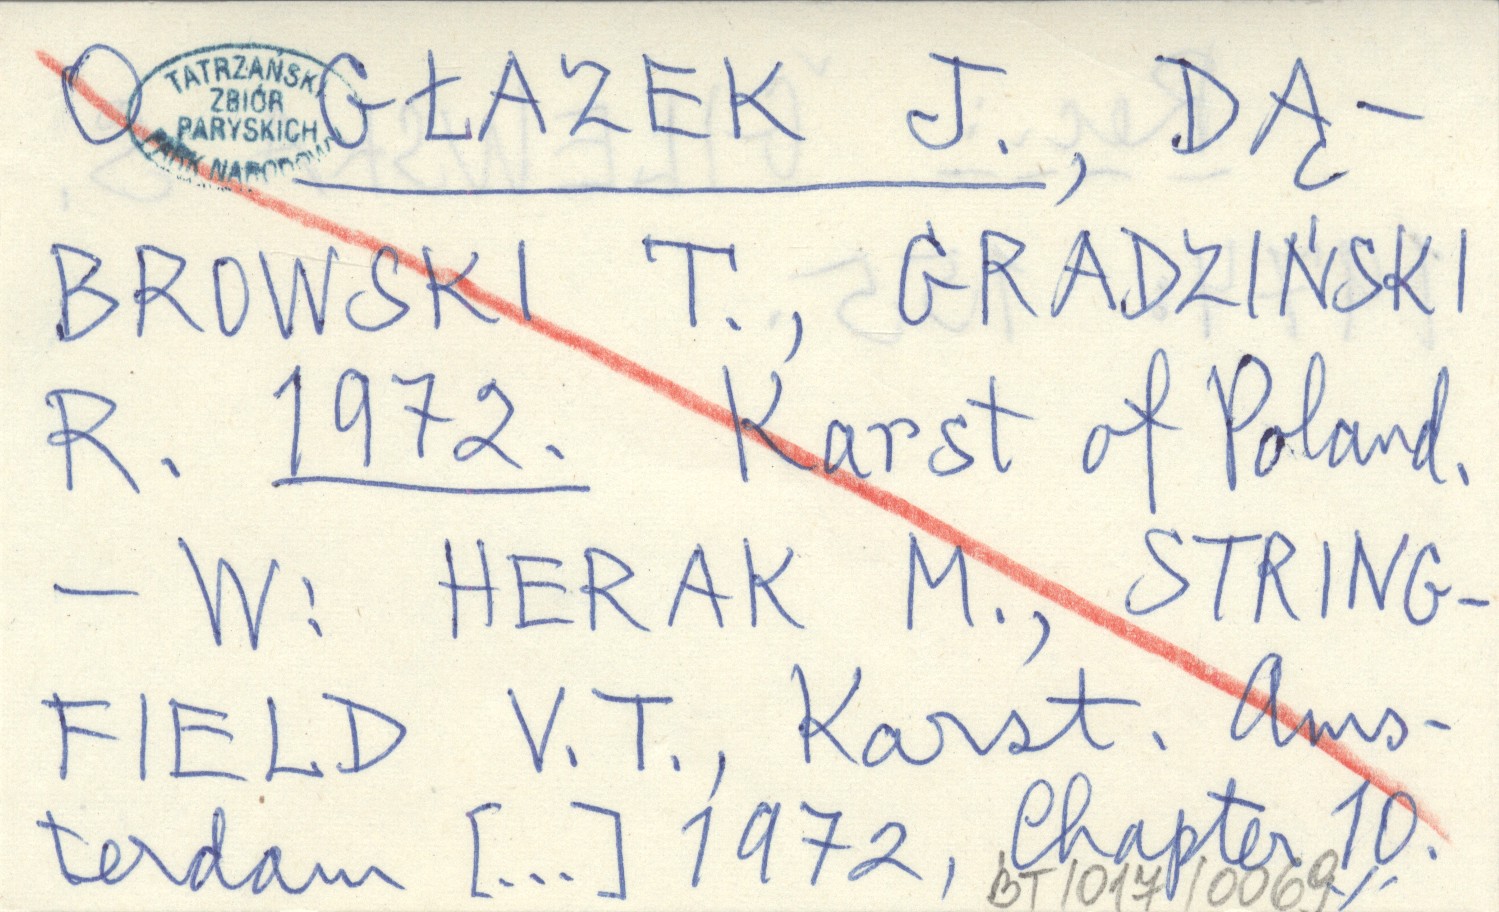 O GŁAZEK J., DĄ-
TATRZAŃSKI
ZBIÓR
PARYSKICH
PARK NARODOW
BROWSKI T., GRADZIŃSKI
R. 1972. Karst of Poland.
- W: HERAK M., STRING-
FIELD V.T., Karst. Ams-
terdam [...] 1972, Chapter 10.
BT/017/0069